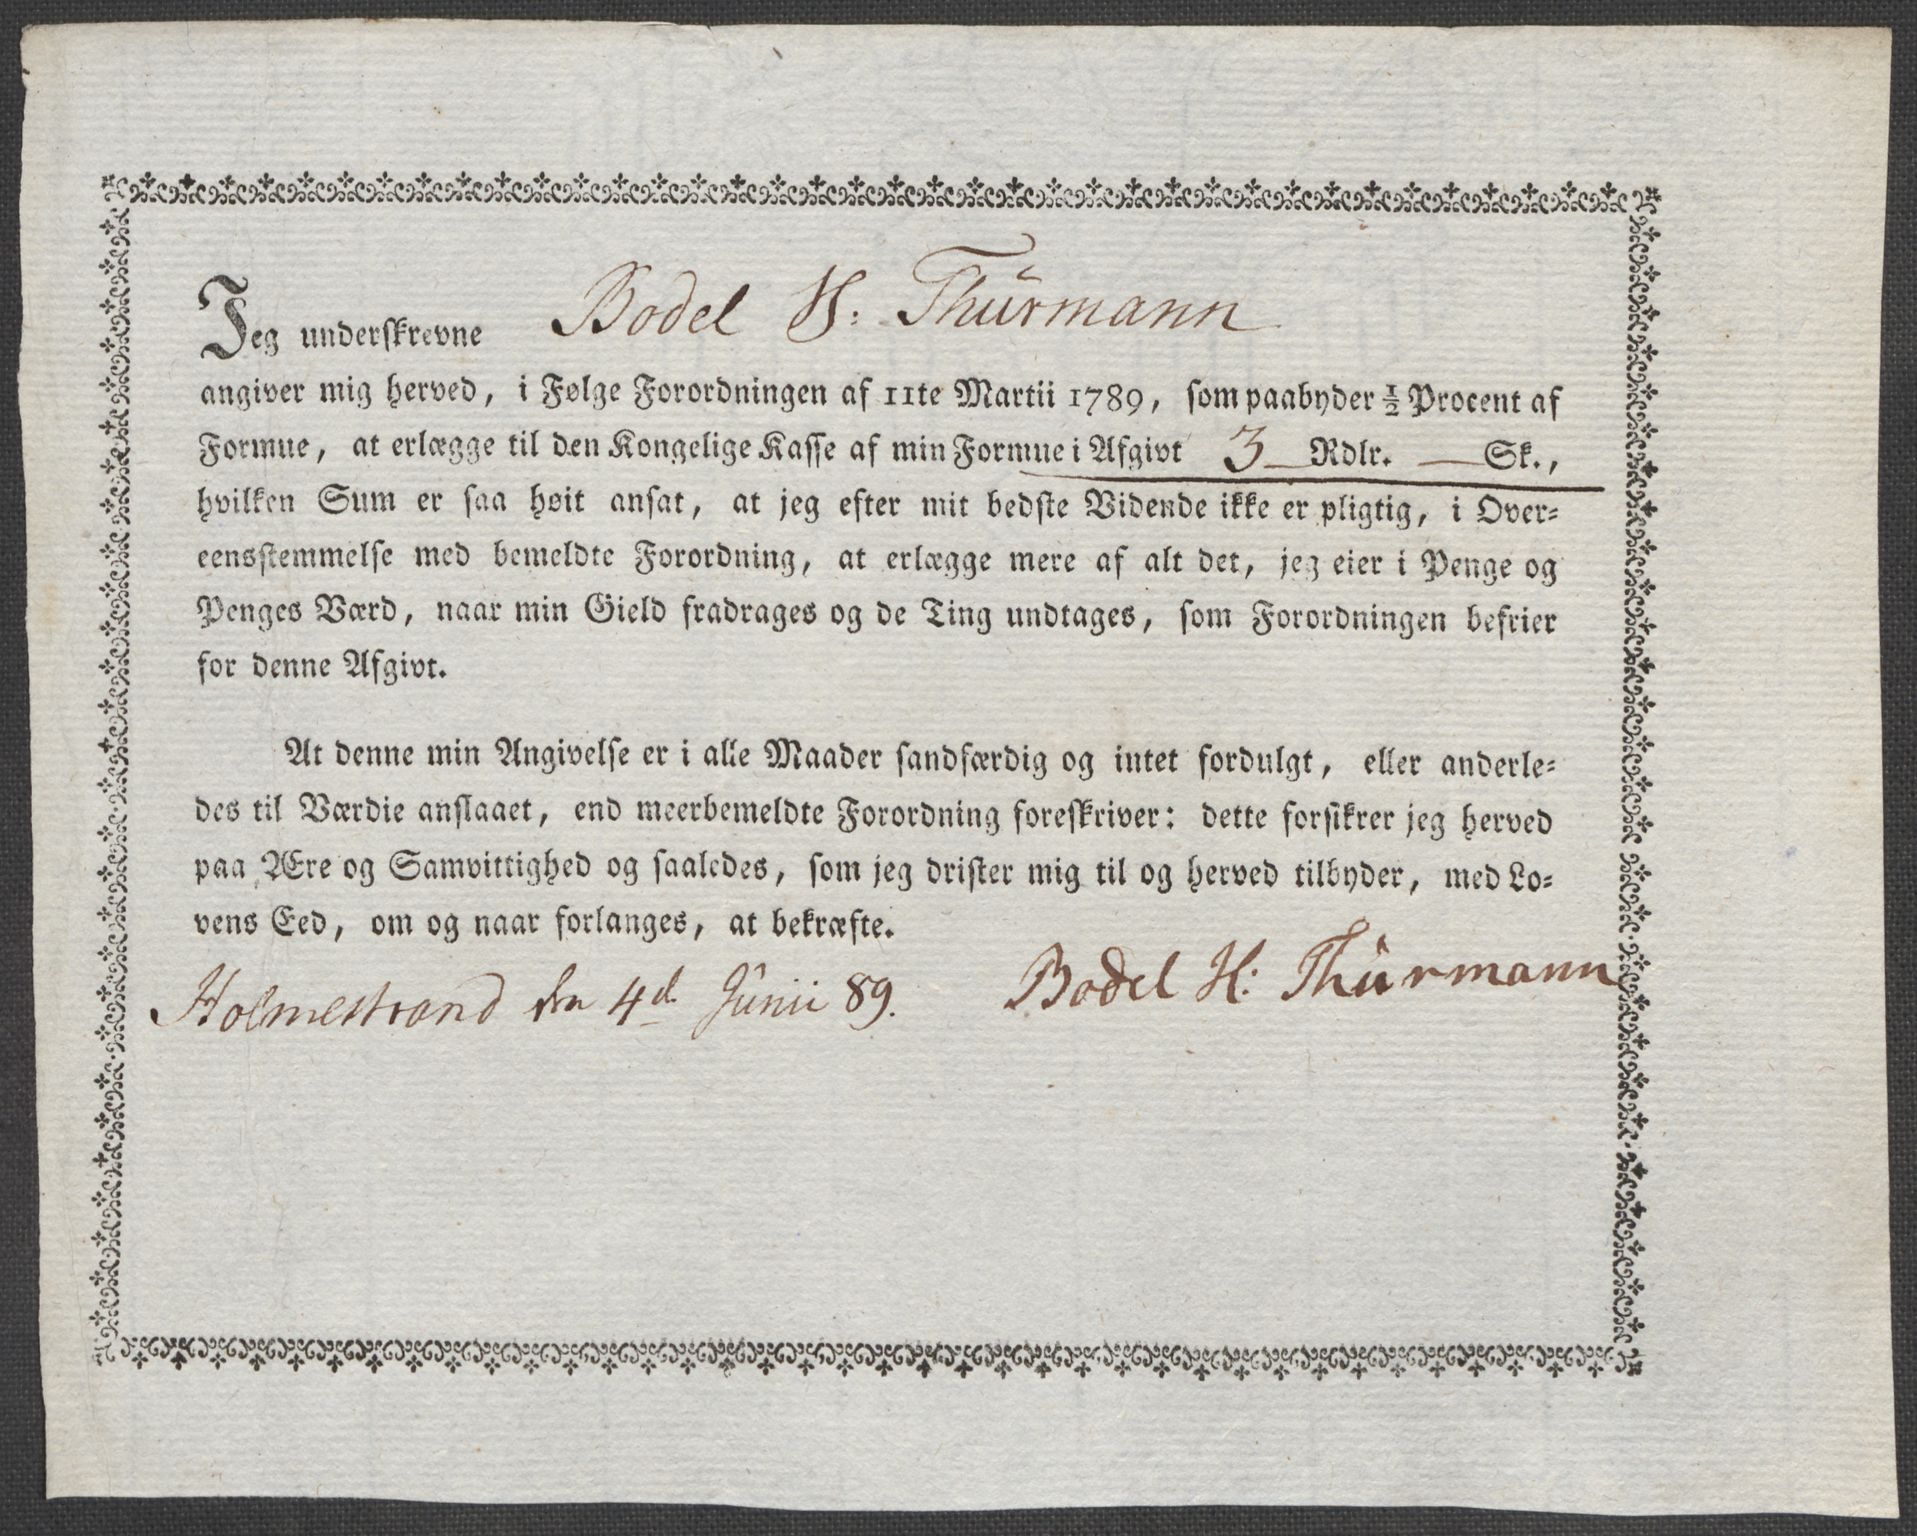 Jeg underskrevne Bodel H: Thürmann
angiver mig herved, i Følge Forordningen af 11te Martii 1789, som paabyder ½ Procent af
Formue, at erlægge til den Kongelige Kasse af min Formue i Afgivt 3 — Rdlr. — Sk.,
hvilken Sum er saa høit ansat, at jeg efter mit bedste Vidende ikke er pligtig, i Over=
eensstemmelse med bemeldte Forordning, at erlægge mere af alt det, jeg eier i Penge og
Penges Værd, naar min Gield fradrages og de Ting undtages, som Forordningen befrier
for denne Afgivt.
At denne min Angivelse er i alle Maader sandfærdig og intet fordulgt, eller anderle=
des til Værdie anslaaet, end meerbemeldte Forordning foreskriver: dette forsikrer jeg herved
paa Ære og Samvittighed og saaledes, som jeg drister mig til og herved tilbyder, med Lo=
vens Eed, om og naar forlanges, at bekræfte.
Holmestrand den 4d Junii 89. Bodel H: Thürmann